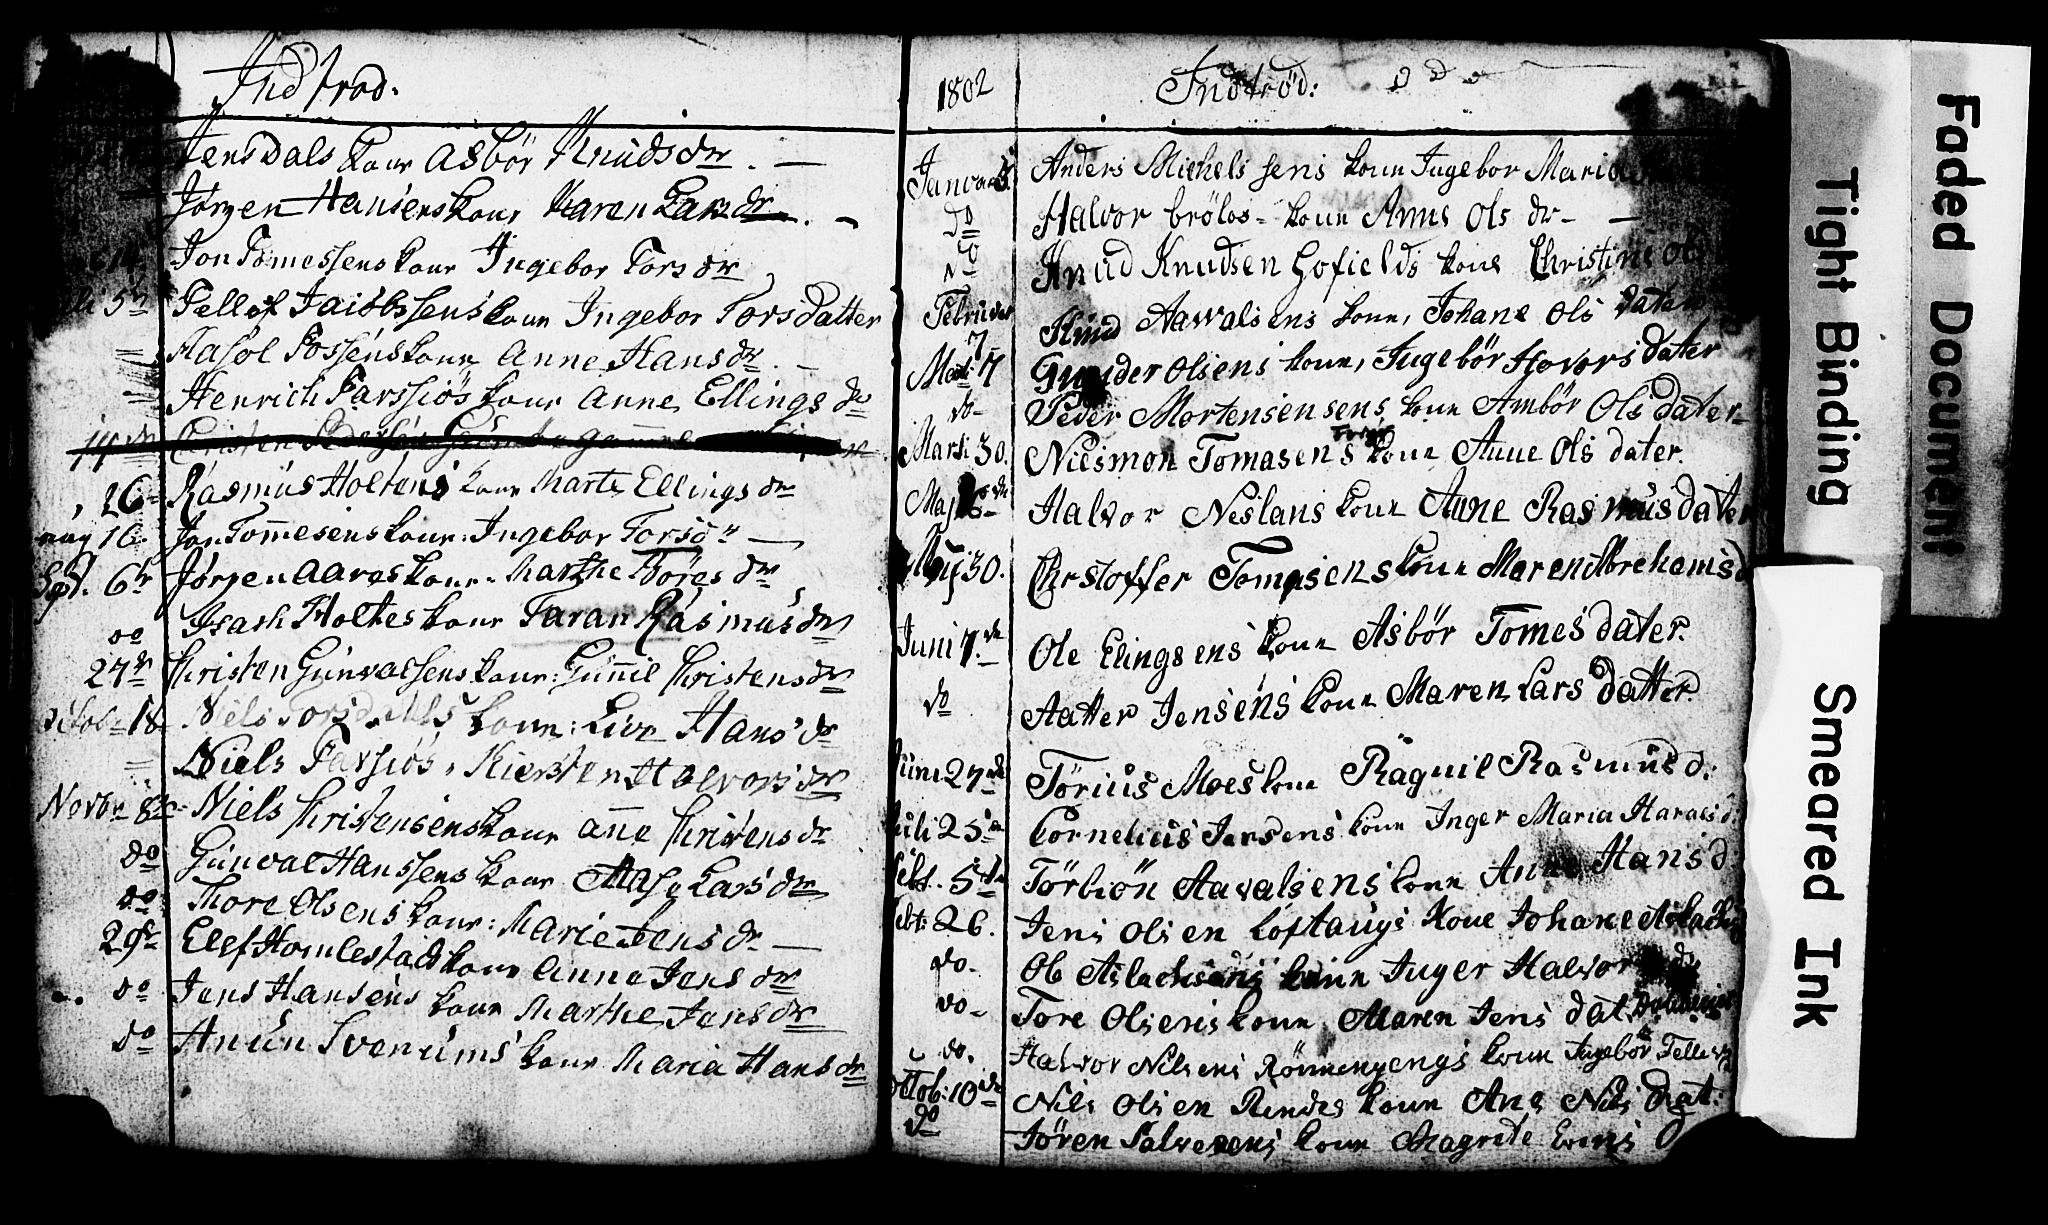 Indtrod.
Jensdals kone Asbör Knudsdr. —
Jörgen Hansens kone Karen Larsdr. —
Jon Tomessens kone Ingebor Torsdr
5te Tellef Jacobssens kone Ingebor Torsdatter
kone Anne Hansdr. —
Henrich kone Anne Ellingsdr
14de
26 Rasmus Holtens kone Marte Ellingsdr
16. Jon Tom̄esens kone: Ingebor Torsdr —
Sept. 6te Jörgen Aares kone. Marthe Böresdr
do Isach Holtes kone Taran Rasmusdr
27de Christen Gunvalsens kone: Gun̄il Christensdr
Octob: 18 Niels kone: Live Hansdr
Niels Kiersten Halvorsdr
Novbr 8de Niels Christensens kone An̄e Christensdr
do Gunval Hanssens kone Larsdr
do: Thore Olsens kone: Marie Jensdr —
29de Elef Homlestads kone Anne Jensdr
do Jens Hansens kone Marthe Jensdr
do Svenums kone Maria Hansdr
1802
Indtröd:
Januari Anders Michelssens kone Ingebor Maria
do Halvor brölos- kone Anne Olsdr- —
do Knud Knudsen Gofields kone Christine Ols
Februar Knud Aavalsens kone, Johane Ols dater
7
Marti 7 Gunder Olsens kone, Ingebör Hovors dater
do- Peder Mortensensens kone Ambör Ols dater-
Marsi 30. Nilsmon Tomasens kone Anne Ols dater.
Maj Halvor Neslans kone Anne Rasmusdater
Maij 30. Chrstoffer Tomasens kone Maren Abrehamsd
Juni 7.de Ole Elingsens kone Asbör Tomesdater.
do Aatter Jensens kone Maren Lars datter.
Juni 27de Törius Moes kone Ragnil Rasmusd.
Juli 25de Cornelius Jensens kone Inger Maria Haraldsd.
5de Törbiön Aavalsens kone Anne Hansd
26. Jens Olsen Loftaugs kone Johane Aslachsd
do- Ol Aslachsens kone Inger Halvor
do- Tore Olsens kone Maren Jens dat.
do. Halvor Nilsens Rönnenyengs kone Ingebör
Octob: 10de Nils Olsen Rendes kone Ane Nils dat:
do Jören Salvesens kone Magrede
Faded Document
Tight Binding
Smeared Ink